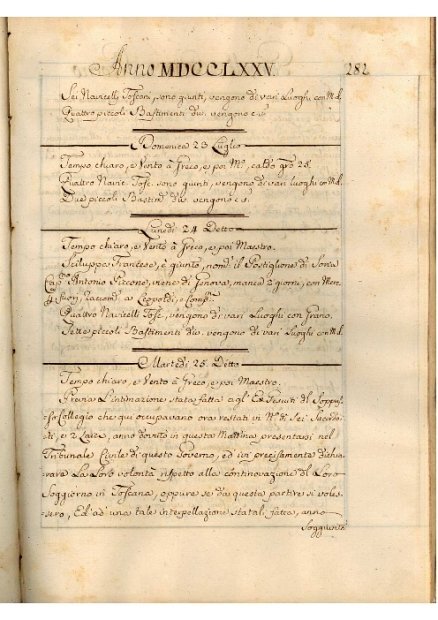 Anno MDCCLXXV. 282
Sei Navicelli Toscani, sono giunti, vengono di vari Luoghi con Md.
Quattro piccoli Bastimenti di.. vengono c.s.
Domenica 23 Luglio
Tempo chiaro, e Vento a Greco, e poi Mo, caldo gro 28.
Quattro Navic. Tosc. sono giunti, vengono di vari luoghi con Md.
Due piccoli Bastim. di.. vengono c.s.
Lunedì 24 Detto
Tempo chiaro, e Vento a Greco, e poi Maestro.
Sciluppo Francese, è giunto, nomto il Postiglione di Soria
Capno Antonio Piccone, viene di Genova, manca 2 giorni, con Men
racomd. a Leopoldi, e Compi
Quattro Navicelli Tosc. vengono di vari Luoghi con Grano.
Sette piccoli Bastimenti di.. vengono di vari Luoghi con Md.
Martedì 25 Detto
Tempo chiaro, e Vento a Greco, e poi Maestro.
Previa L'intimazione stata fatta agl' Ex Gesuiti del Soppres
so Collegio che qui occupavano ora restati in No di Sei Sacerdo
ti, e 2 Laici, anno dovuto in questa Mattina presentarsi nel
Tribunale Civile di questo Governo, ed ivi precisamente dichia
rare La Loro volontà rispetto alla continovazione del Loro
Soggiorno in Toscana, oppure se da questa partire si voles-
sero, Ed ad una tale interpellazione statali fatta, anno